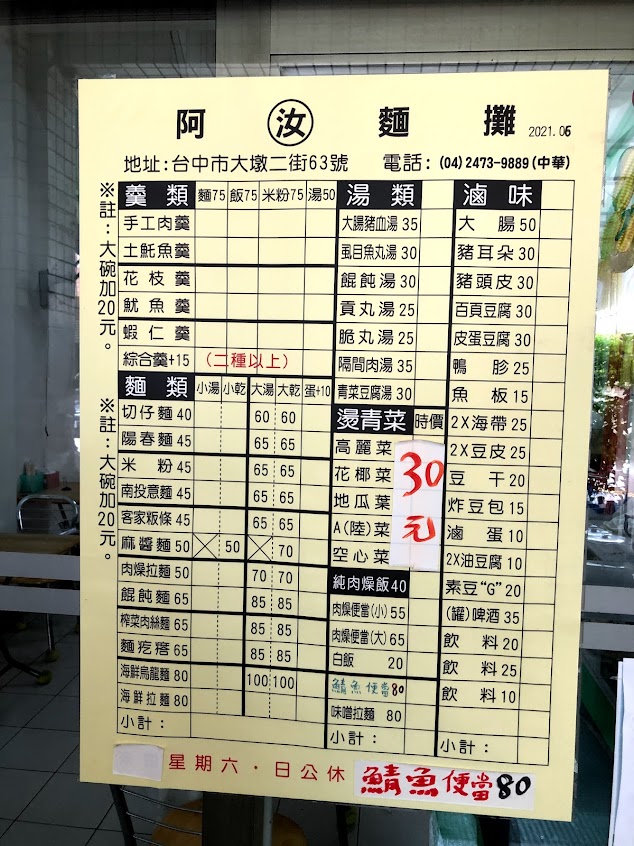 阿汝麵攤 2021.05
地址:台中市大墩二街63號 電話:(04)2473-9889(中華)
※註:大碗加20元。
羹類 麵75 飯75 米粉75 湯50
手工肉羹
土魠魚羹
花枝羹
魷魚羹
蝦仁羹
綜合羹+15 (二種以上)
※註:大碗加20元。
麵類 小湯 小乾 大湯 大乾 蛋+10
切仔麵 40 60 60
陽春麵 45 65 65
米粉 45 65 65
南投意麵 45 65 65
客家粄條 45 65 65
麻醬麵 50 50 70
肉燥拉麵 50 70 70
餛飩麵 65 85 85
榨菜肉絲麵 65 85 85
麵疙瘩 65 85 85
海鮮烏龍麵 80 100 100
海鮮拉麵 80
小計:
湯類
大腸豬血湯 35
虱目魚丸湯 30
餛飩湯 30
貢丸湯 25
脆丸湯 25
隔間肉湯 35
青菜豆腐湯 30
燙青菜 時價
高麗菜
花椰菜
地瓜葉
A(陸)菜
空心菜
30元
純肉燥飯 40
肉燥便當(小) 55
肉燥便當(大) 65
白飯 20
鯖魚便當 80
味噌拉麵 80
小計:
滷味
大腸 50
豬耳朵 30
豬頭皮 30
百頁豆腐 30
皮蛋豆腐 30
鴨胗 25
魚板 15
2X海帶 25
2X豆皮 25
豆干 20
炸豆包 15
滷蛋 10
2X油豆腐 10
素豆“G” 20
(罐)啤酒 35
飲料 20
飲料 25
飲料 10
小計:
星期六·日公休 鯖魚便當80